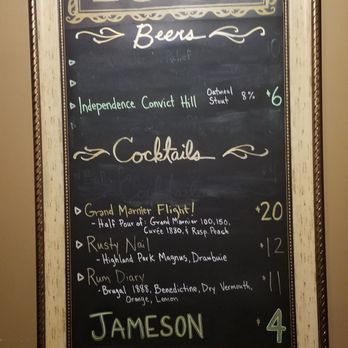 Beers
Independence Convict Hill Oatmeal Stout 8% $6
Cocktails
Grand Marnier Flight! $20
- Half Pour of: Grand Marnier 100, 150,
Cuvée 1880, & Rasp. Peach
Rusty Nail $12
- Highland Park Magnus, Drambuie
Rum Diary $11
- Brugal 1888, Benedictine, Dry Vermouth,
Orange, Lemon
JAMESON $4